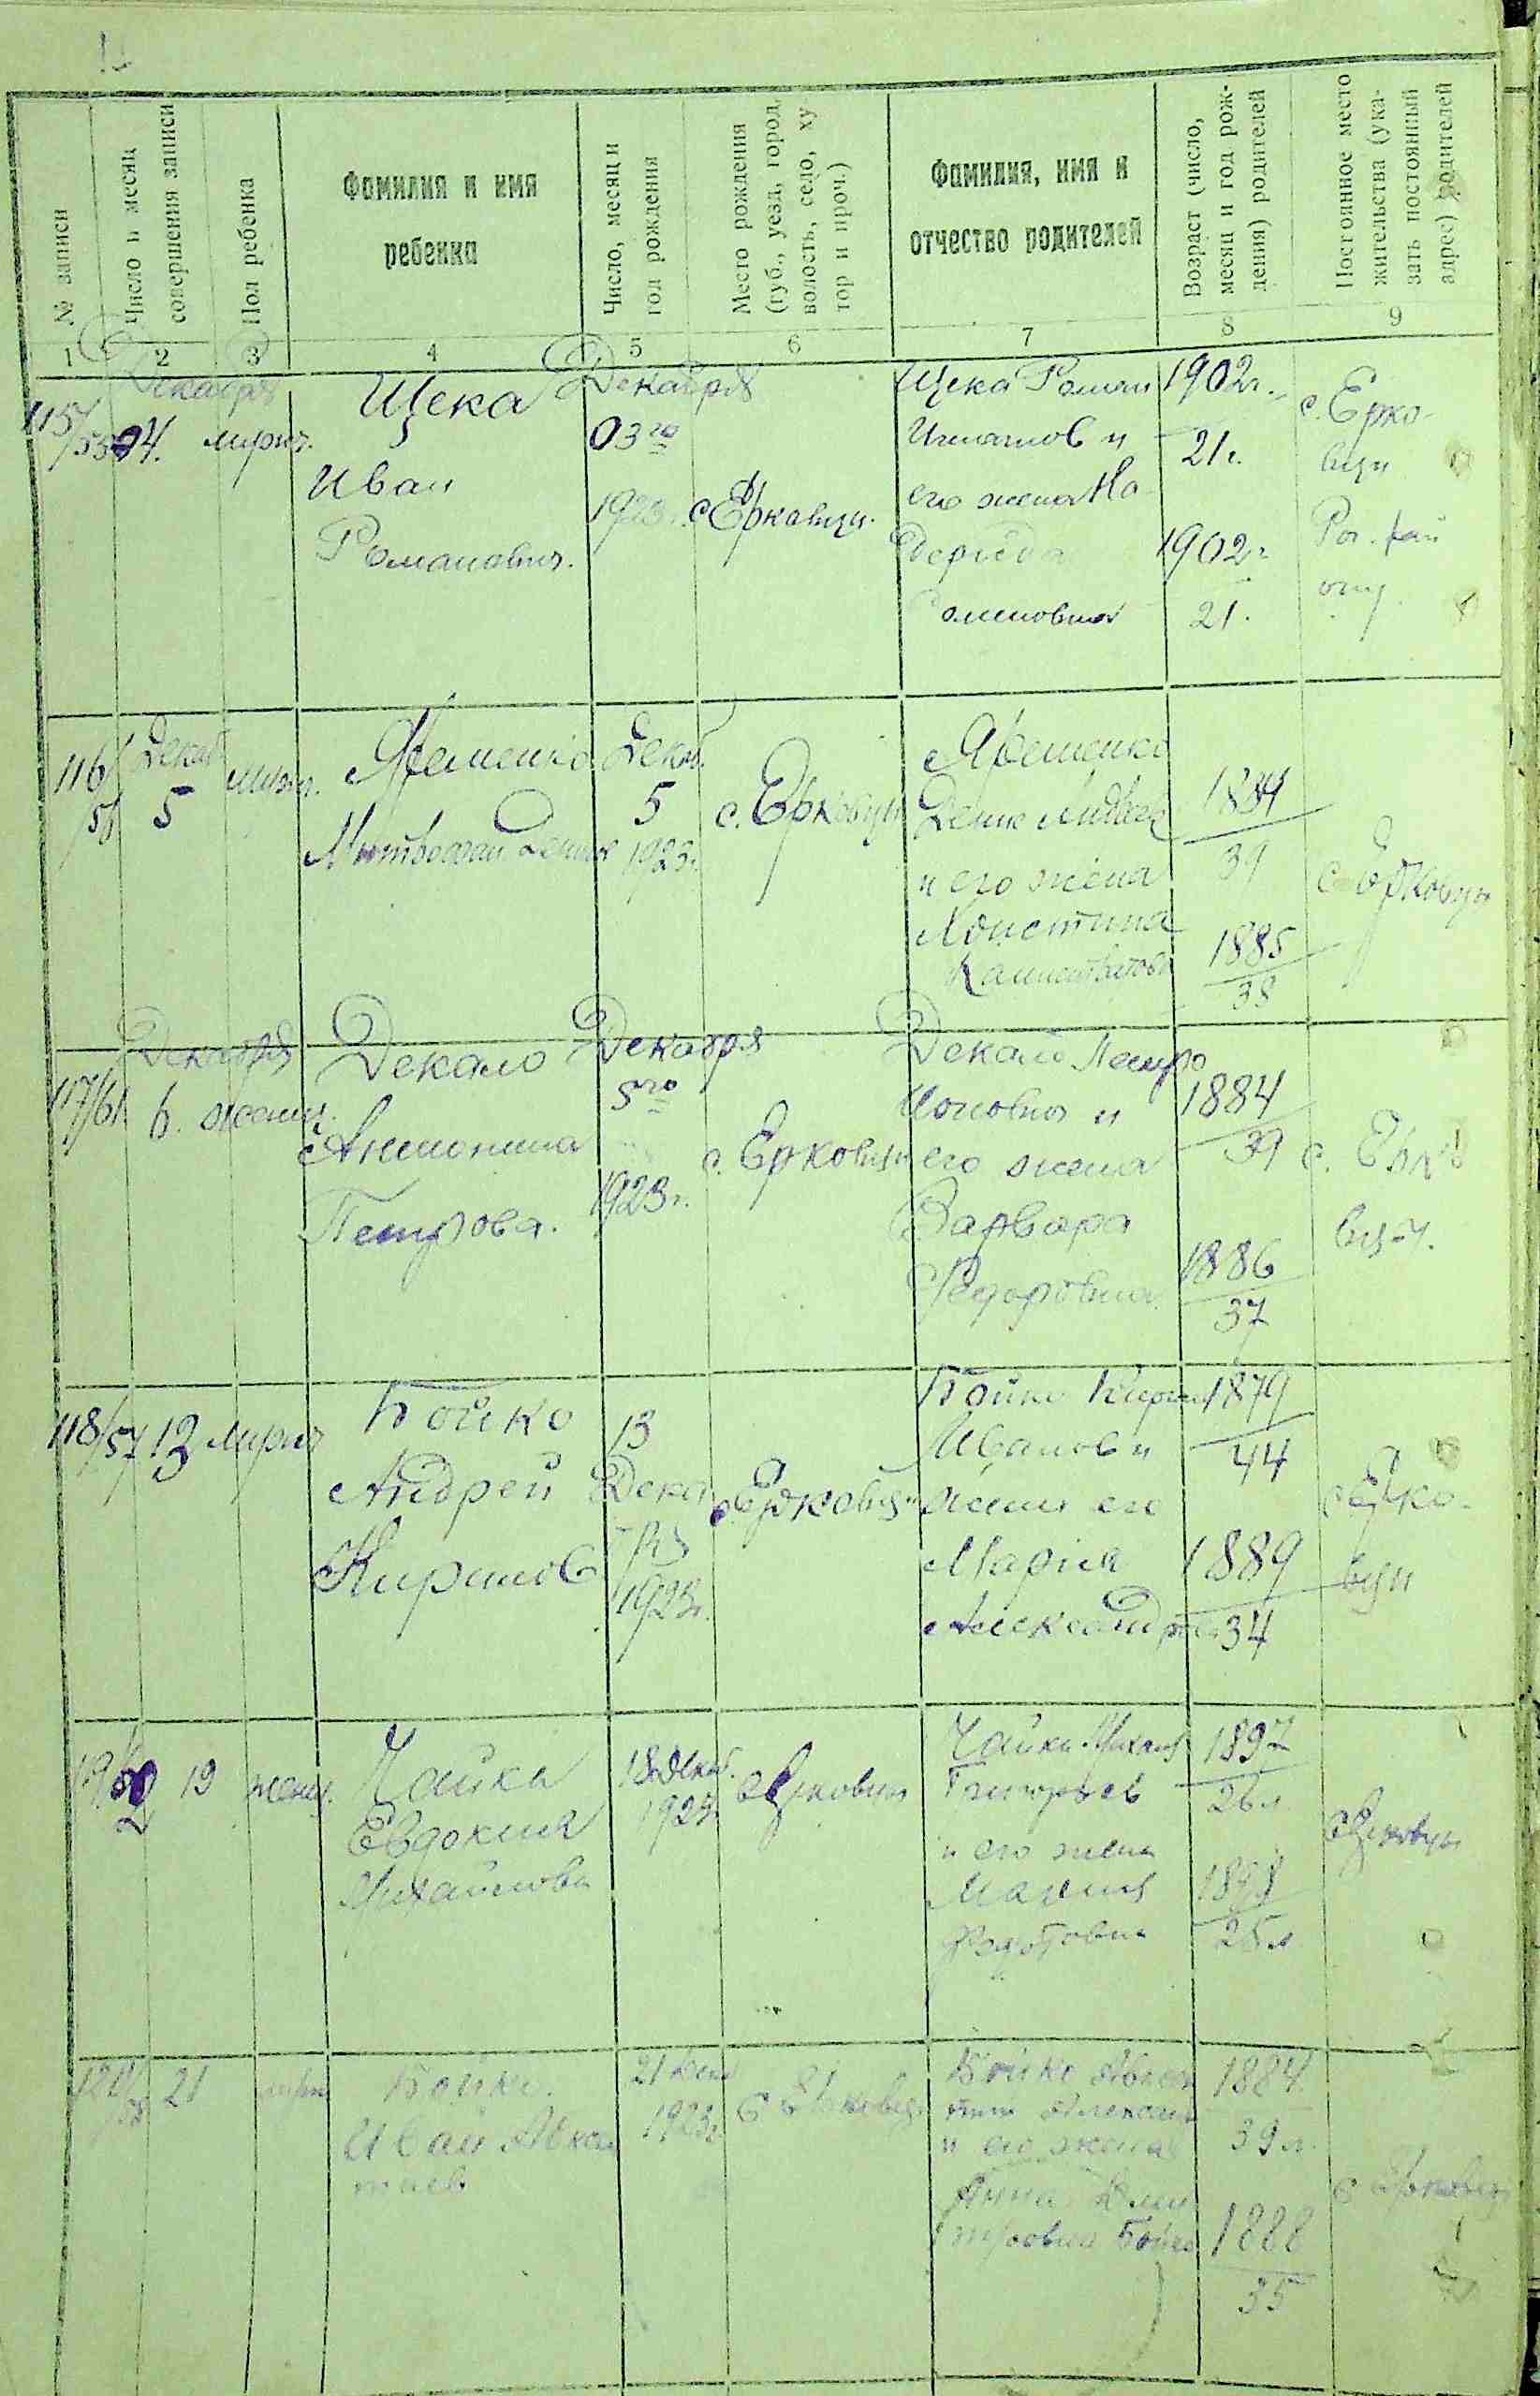 № записи
Число и месяц
совершения записи
Пол ребенка
Фамилия и имя
ребенка
Число, месяц и
год рождения
Место рождения
(губ., уезд, город,
волость, село, ху
тор и проч.)
Фамилия, имя и
отчество родителей
Возраст (число,
месяц и год рож-
дения) родителей
Постоянное место
жительства (ука-
зать постоянный
адрес) родителей
1 2 3 4 5 6 7 8 9
115/55
Декабря
04.
Щека
Иван
Романович.
Декабря
03го
1923
с Ерковци.
Щека Роман
Игнатов и
его жена
1902г.
21г.
1902г.
21.
с. Ерко-
вци
116
Декаб
5
Яременко
Декб.
5
1923г.
с. Ерковци
Яременко
и его жена
Христина
1884
39
1885
38
с Ерковци
117/61
Декабря
6. женщ.
Декало
Антонина
Петрова.
Декабря
5го
1923г.
с. Ерковци
Декало Петро
и
его жена
Варвара
Федоровна
1884
39
1886
37
с. Ерко
вци.
118/57
13
Бойко
Андрей
Кирилов
13
Дека
бря
1923г.
с. Ерковци
Бойко Кирил
Иванов и
жена его
Мария
Александров
1879
44
1889
34
с Ерко-
вци
19
женщ.
Чайка
Евдокия
Михайлова
18 декаб.
1923
с Ерковци
Чайка Михаил
Григорьев
и его жена
Мария
1897
26 л.
1898
25 л
с Ерковци
21
Бойко.
Иван
21 Дек
1923г.
с Ерковци
Бойко
и его жена
Анна Дми
тровна Бойко
1884
39 л.
1888
35
с Ерковци